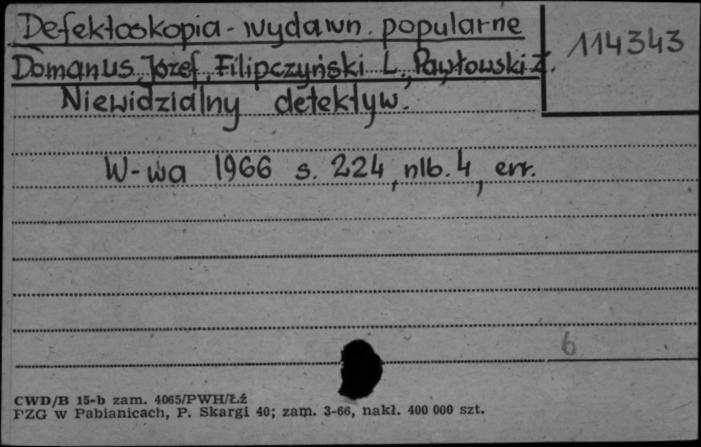 Defektoskopia - wydawn. popularne
114343
Domanus Józef, Filipczyński L., Pawłowski Z.
Niewidzialny detektyw.
W-wa 1966 s. 224, nlb. 4, err.
6
CWD/B 15-b zam. 4065/PWH/Łź
PZG w Pabianicach, P. Skargi 40; zam. 3-66, nakł. 400 000 szt.